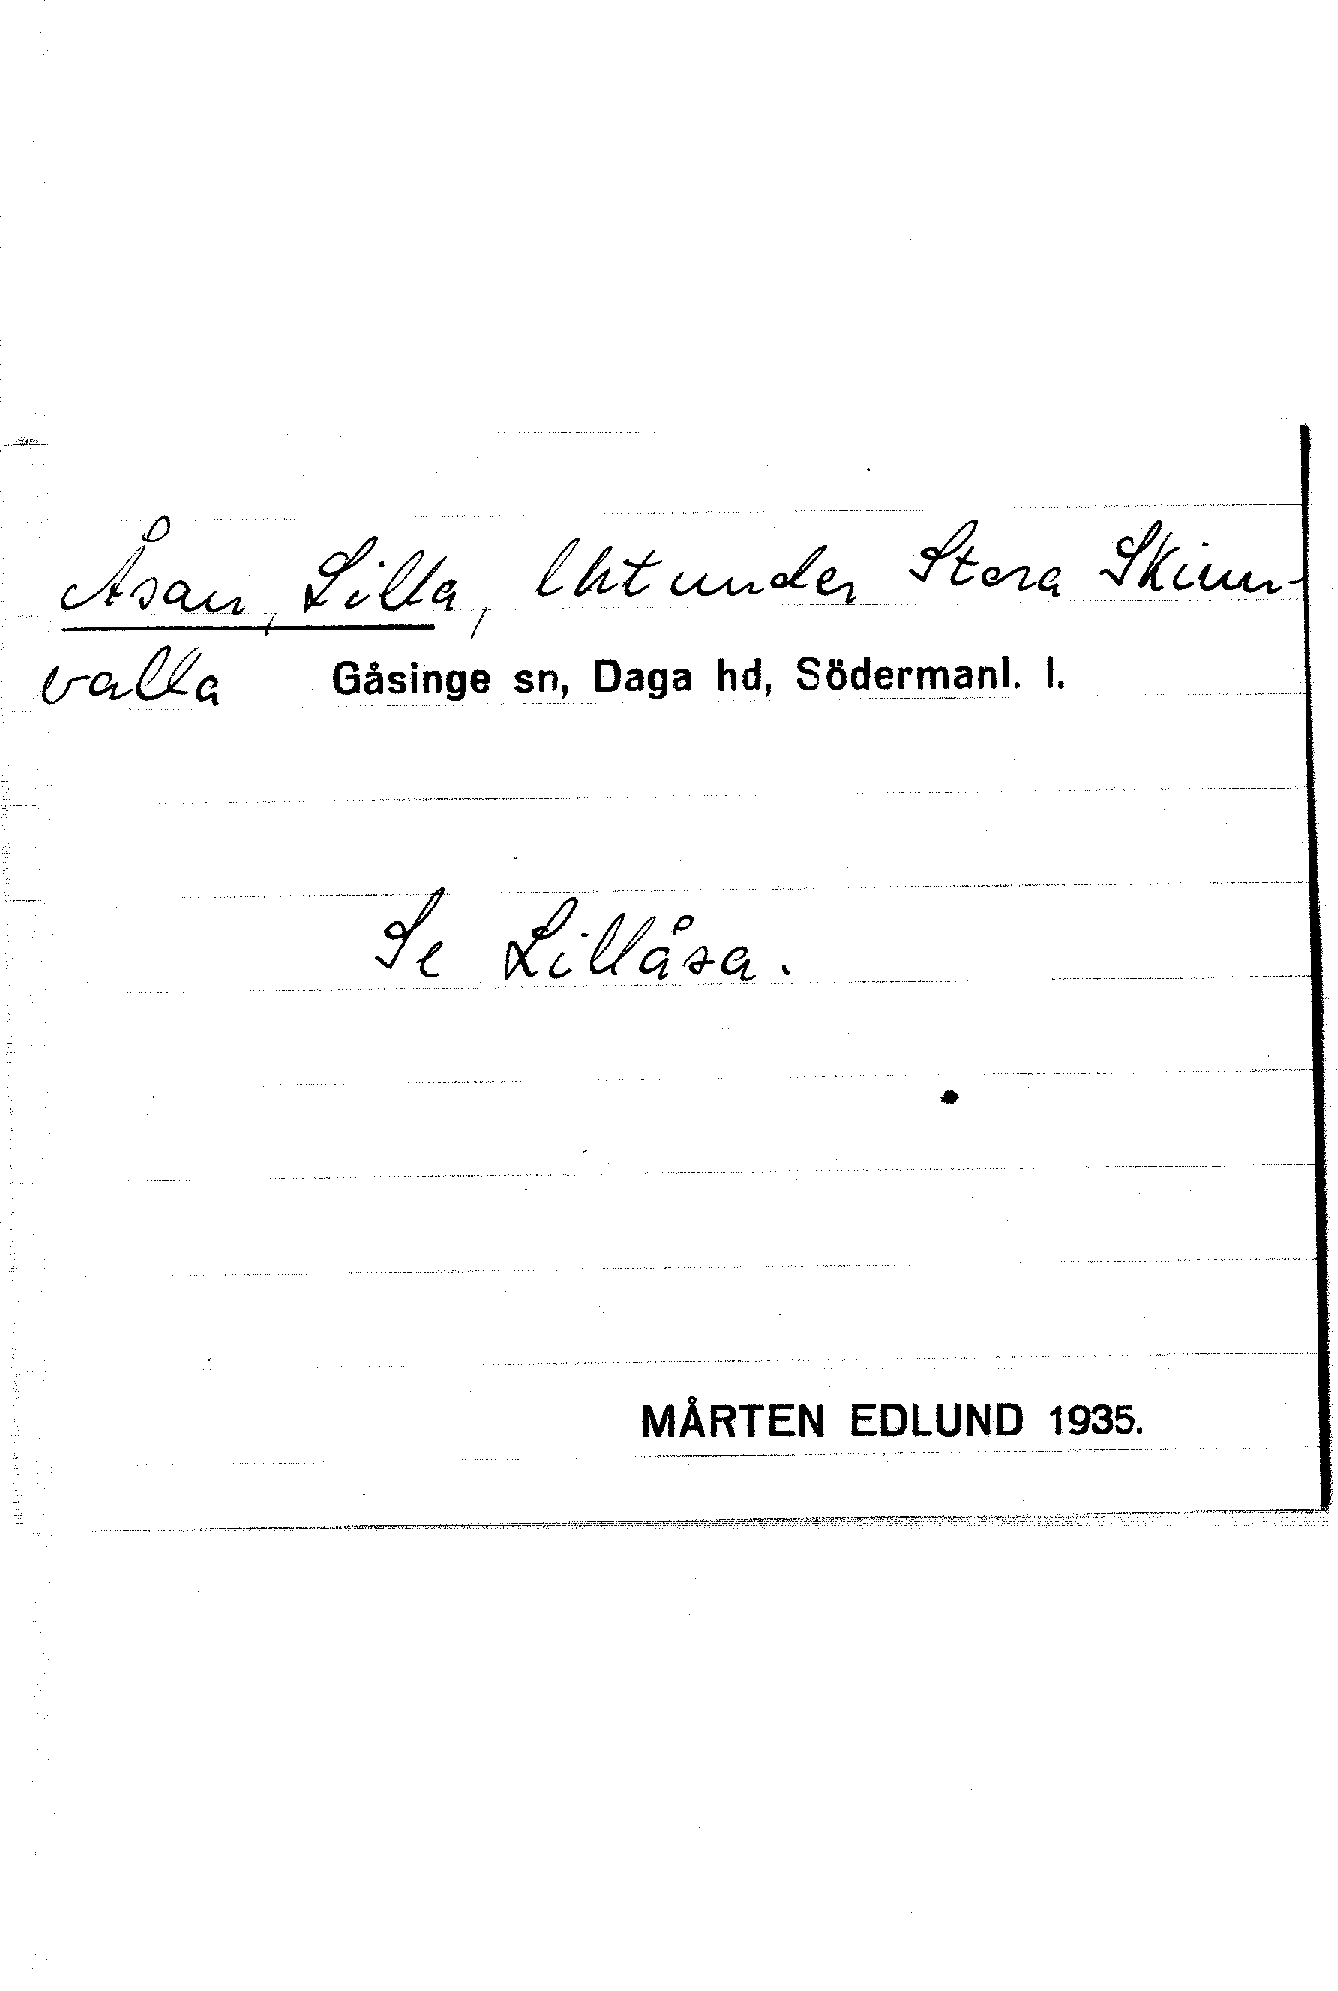 Åsan, Lilla, lht under Stora Skinn-
valla Gåsinge sn, Daga hd, Södermanl. l.
Se Lillåsa.
MÅRTEN EDLUND 1935.